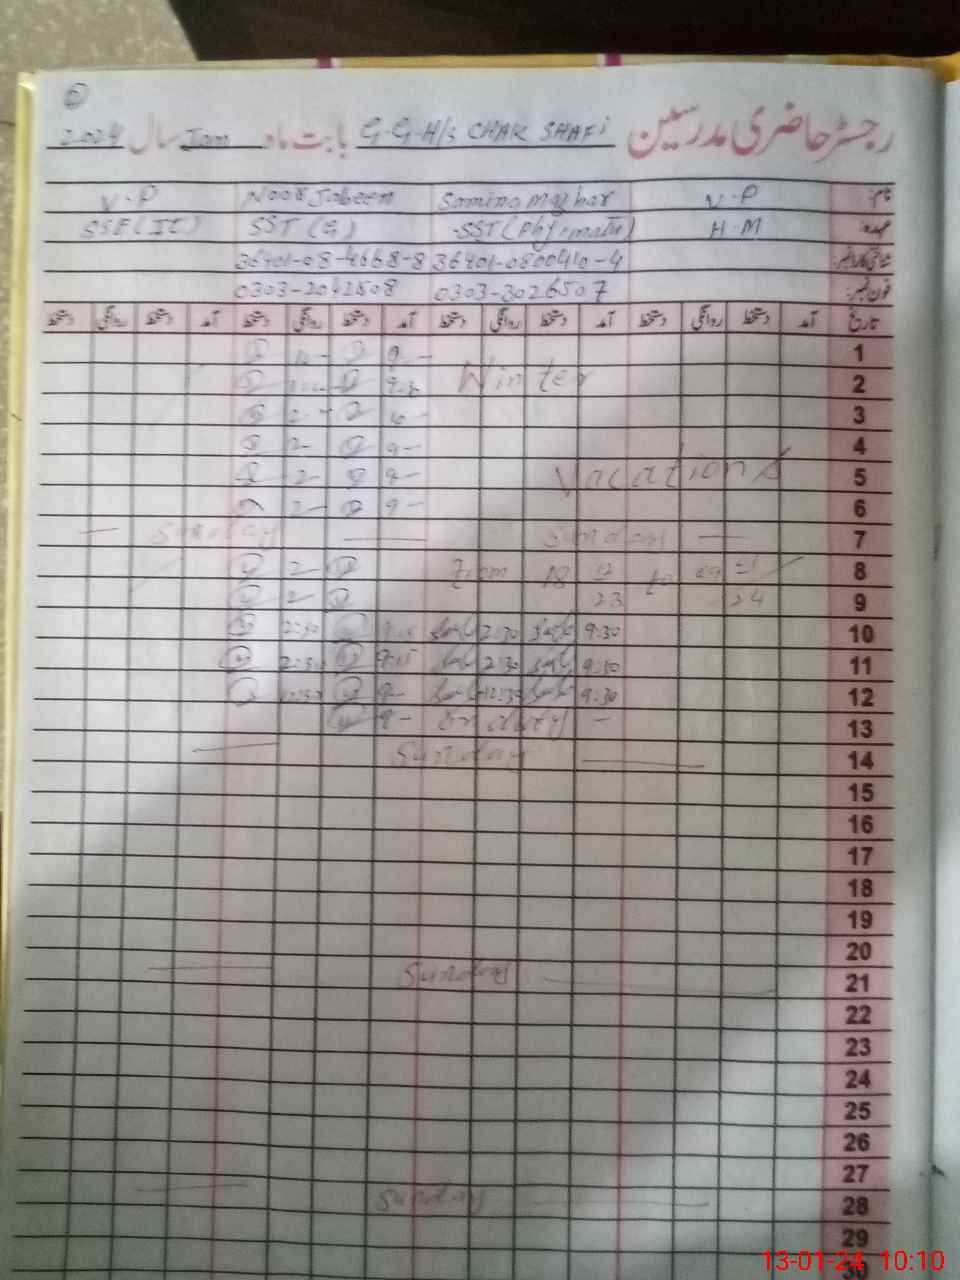 رجسٹر حاضری مدرسین G-G-H/S CHAK SHAFI بابت ماہ Jan سال 2024
نام: V-P Samina Mazhar Noor Jabeen V-P
عہدہ: H-M SST (Phy-math) SST (G) SSE (IT)
شناختی کارڈ نمبر: 36401-0800410-4 36401-08-4668-8
فون نمبر: 0303-3026507 0303-2042508
تاریخ آمد دستخط روانگی دستخط آمد دستخط روانگی دستخط آمد دستخط روانگی دستخط آمد دستخط روانگی دستخط
1 9-
2 Winter 9:30
3 2-
4 9- 2-
5 Vacations 9- 2-
6 9- 2-
7 Sunday Sunday
8 From 18 12 to 09 2-
9 23 24 2-
10 9:30 2:30 9:15 2:30
11 9:30 2:30 9:15 2:30
12 9:30 12:30 9- 12:30
13 on duty 9-
14 Sunday
15
16
17
18
19
20
21 Sunday
22
23
24
25
26
27
28 Sunday
29
30
13-01-24 10:10